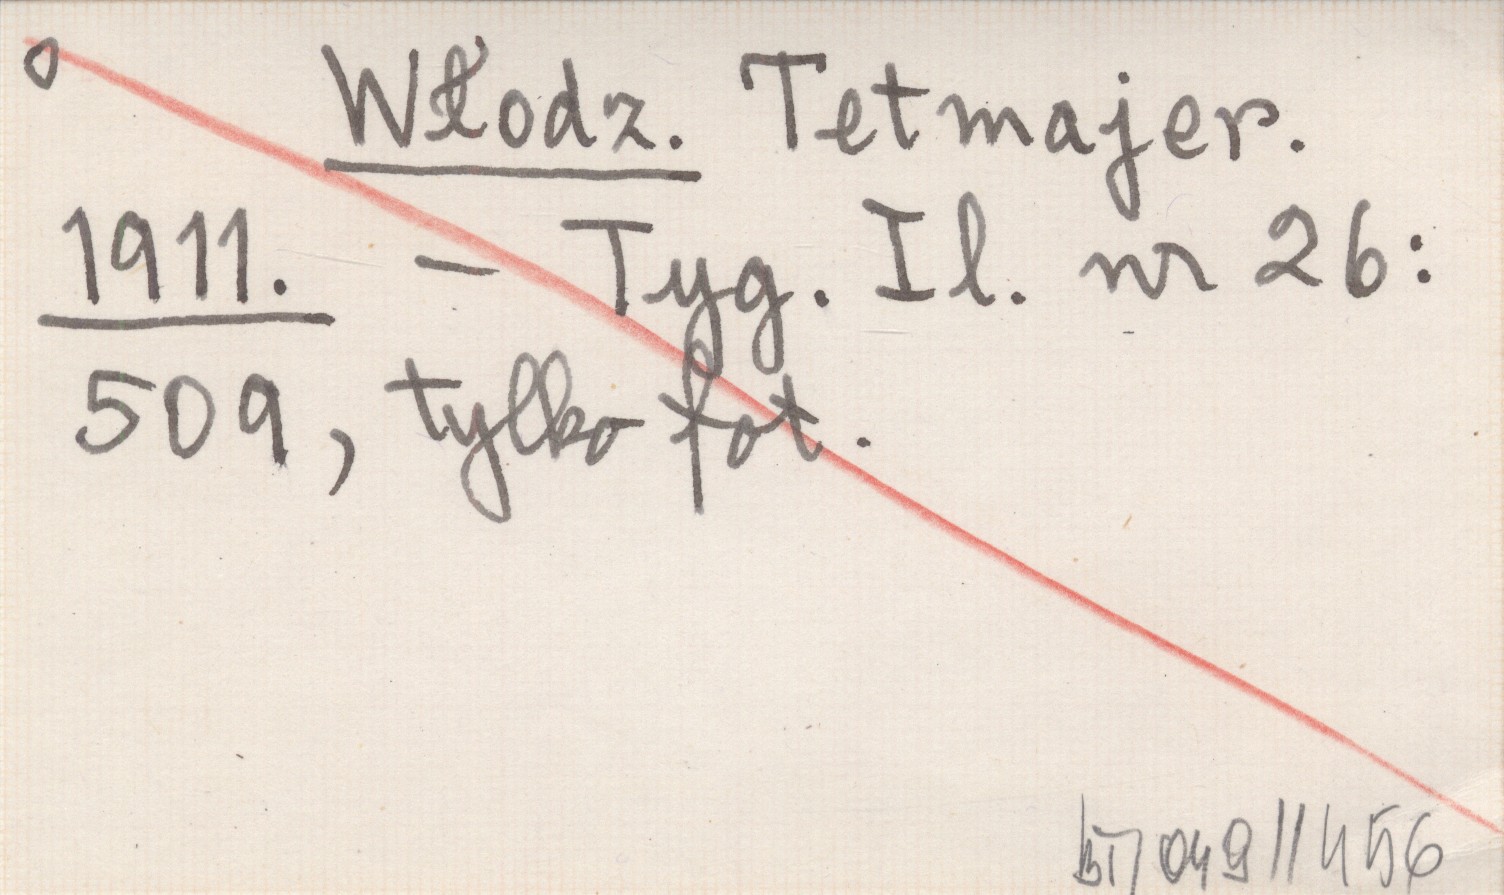 o Włodz. Tetmajer.
1911. – Tyg. Il. nr 26:
509, tylko fot.